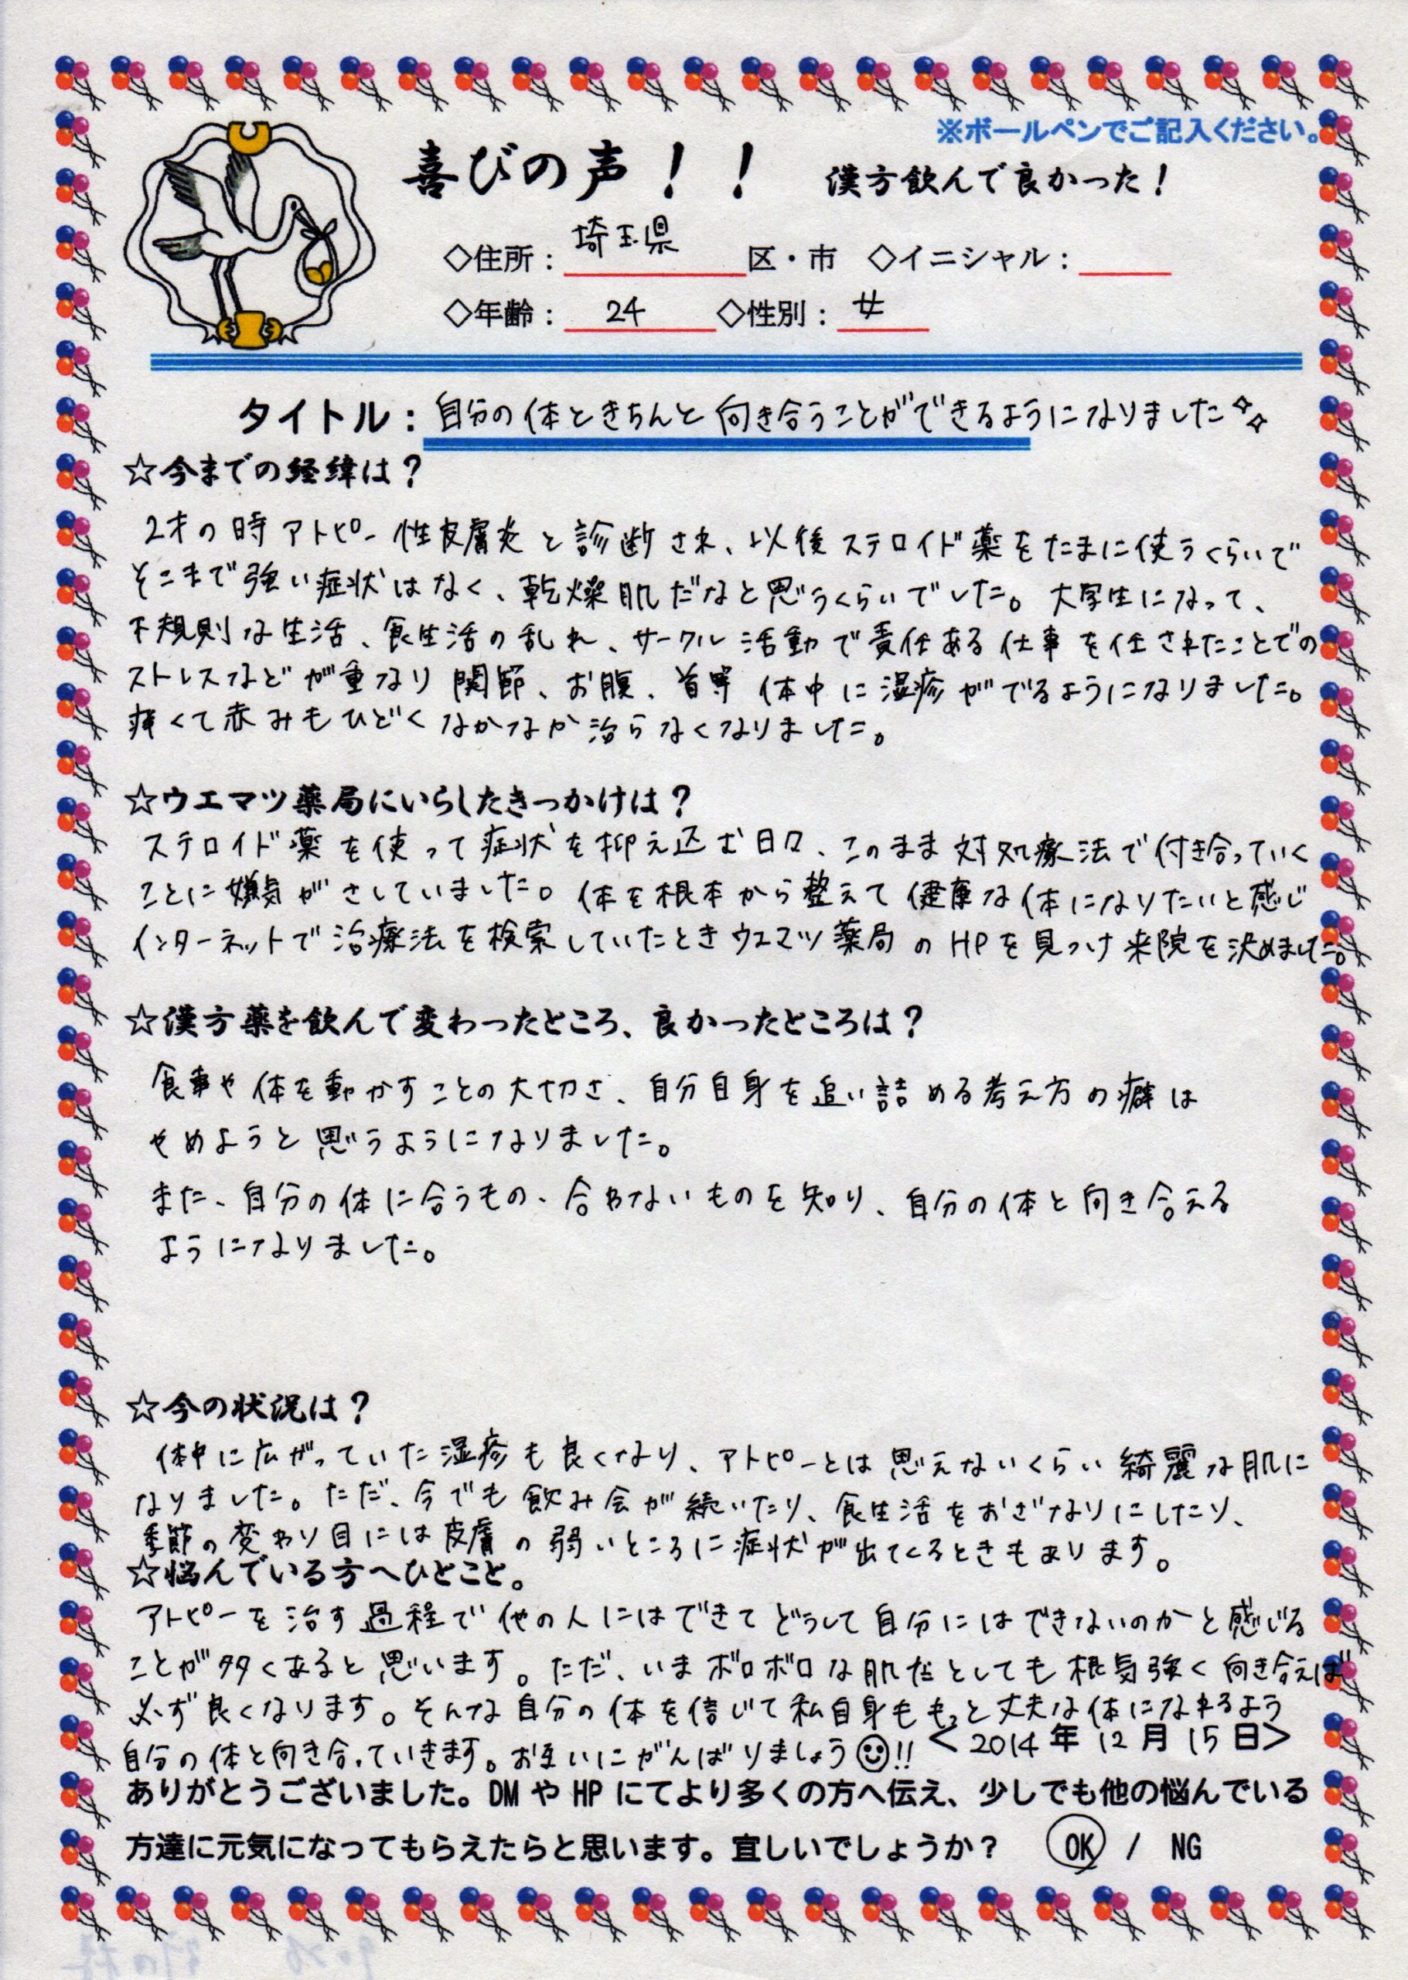 ※ボールペンでご記入ください。
喜びの声！！ 漢方飲んで良かった！
◇住所：埼玉県 区・市 ◇イニシャル：
◇年齢：24 ◇性別：女
タイトル：自分の体ときちんと向き合うことができるようになりました
☆今までの経緯は？
2才の時アトピー性皮膚炎と診断され、以後ステロイド薬をたまに使うくらいで
そこまで強い症状はなく、乾燥肌だなと思うくらいでした。大学生になって、
不規則な生活、食生活の乱れ、サークル活動で責任ある仕事を任されたことでの
ストレスなどが重なり関節、お腹、首等体中に湿疹がでるようになりました。
痒くて赤みもひどくなかなか治らなくなりました。
☆ウエマツ薬局にいらしたきっかけは？
ステロイド薬を使って症状を抑え込む日々、このまま対処療法で付き合っていく
ことに嫌気がさしていました。体を根本から整えて健康な体になりたいと感じ
インターネットで治療法を検索していたときウエマツ薬局のHPを見つけ来院を決めました。
☆漢方薬を飲んで変わったところ、良かったところは？
食事や体を動かすことの大切さ、自分自身を追い詰める考え方の癖は
やめようと思うようになりました。
また、自分の体に合うもの、合わないものを知り、自分の体と向き合える
ようになりました。
☆今の状況は？
体中に広がっていた湿疹も良くなり、アトピーとは思えないくらい綺麗な肌に
なりました。ただ、今でも飲み会が続いたり、食生活をおざなりにしたり、
季節の変わり目には皮膚の弱いところに症状が出てくるときもあります。
☆悩んでいる方へひとこと。
アトピーを治す過程で他の人にはできてどうして自分にはできないのかと感じる
ことが多くあると思います。ただ、いまボロボロな肌だとしても根気強く向き合えば
必ず良くなります。そんな自分の体を信じて私自身ももっと丈夫な体になれるよう
自分の体と向き合っていきます。お互いにがんばりましょう!!
＜2014年12月15日＞
ありがとうございました。DMやHPにてより多くの方へ伝え、少しでも他の悩んでいる
方達に元気になってもらえたらと思います。宜しいでしょうか？ OK / NG